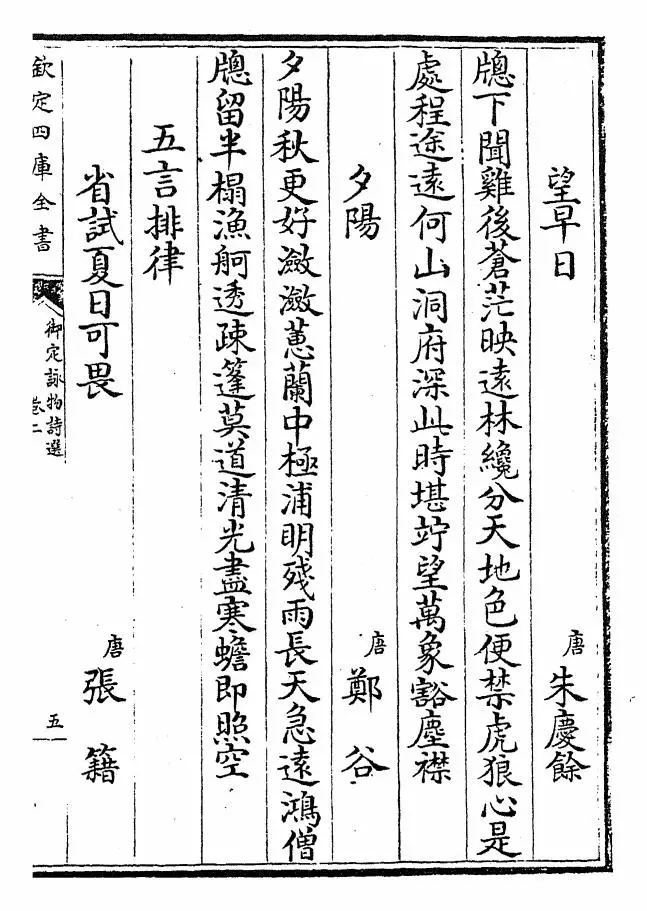 望早日 唐 朱慶餘
牕下聞雞後蒼茫映遠林纔分天地色便禁虎狼心是
處程途遠何山洞府深此時堪竚望萬象豁塵襟
夕陽 唐 鄭谷
夕陽秋更好瀲瀲蕙蘭中極浦明殘雨長天急遠鴻僧
牕留半榻漁舸透疎篷莫道清光盡寒蟾即照空
五言排律
省試夏日可畏 唐 張籍
欽定四庫全書 御定詠物詩選 卷二 五